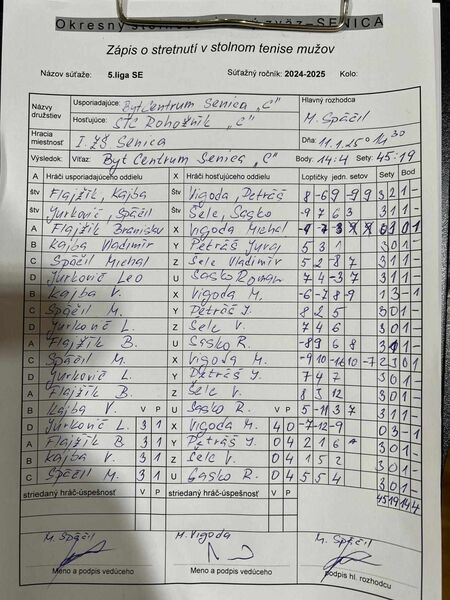 Okresný stolnotenisový zväz – SENICA
Zápis o stretnutí v stolnom tenise mužov
Názov súťaže: 5.liga SE Súťažný ročník: 2024-2025 Kolo:
Názvy družstiev Usporiadajúce: Byt Centrum Senica „C" Hlavný rozhodca
Hosťujúce: STC Rohožník „C" M. Spáčil
Hracia miestnosť I. ZŠ Senica Dňa: 11.1.25 o 14 30
Výsledok: Víťaz: Byt Centrum Senica „C" Body: 14:4 Sety: 45:19
A Hráči usporiadajúceho oddielu X Hráči hosťujúceho oddielu Loptičky jedn. setov Sety Bod
štv Flajžík, Kajba Štv Vigoda, Petráš 8 -6 9 -9 9 3 2 1 -
štv Jurkovič, Spáčil Štv Šele, Sasko -9 7 6 3 3 1 1 -
A Flajžík Branislav X Vigoda Michal
B Kajba Vladimír Y Petráš Juraj 5 3 1 3 0 1 -
C Spáčil Michal Z Šele Vladimír 5 -2 8 7 3 1 1 -
D Jurkovič Leo U Sasko Roman 7 4 -3 7 3 1 1 -
B Kajba V. X Vigoda M. -6 -7 8 -9 1 3 - 1
C Spáčil M. Y Petráš J. 8 2 5 3 0 1 -
D Jurkovič L. Z Šele V. 7 4 6 3 0 1 -
A Flajžík B. U Sasko R. -8 9 6 8 3 1 1 -
C Spáčil M. X Vigoda M. -9 10 -16 10 -7 2 3 0 1
D Jurkovič L. Y Petráš J. 7 4 7 3 0 1 -
A Flajžík B. Z Šele V. 8 3 12 3 0 1 -
B Kajba V. V P U Sasko R. V P 5 -11 3 7 3 1 1 -
D Jurkovič L. 3 1 X Vigoda M. 4 0 -7 -12 -9 0 3 - 1
A Flajžík B. 3 1 Y Petráš J. 0 4 2 1 6 3 0 1 -
B Kajba V. 3 1 Z Šele V. 0 4 1 5 2 3 0 1 -
C Spáčil M. 3 1 U Sasko R. 0 4 5 5 4 3 0 1 -
striedaný hráč-úspešnosť V P striedaný hráč-úspešnosť V P 45 19 14 4
M. Spáčil M. Vigoda M. Spáčil
Meno a podpis vedúceho Meno a podpis vedúceho podpis hl. rozhodcu